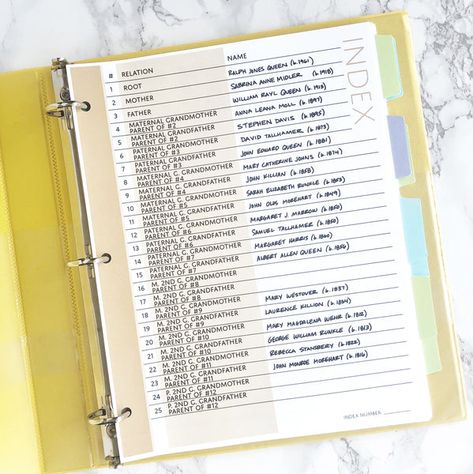 INDEX
# RELATION NAME
1 ROOT RALPH JONES QUEEN (b. 1961)
2 MOTHER SABRINA ANNE MIDLER (b. 1918)
3 FATHER WILLIAM RAYL QUEEN (b. 1913)
4 MATERNAL GRANDMOTHER ANNA LEANA MOLL (b. 1897)
PARENT OF #2
5 MATERNAL GRANDFATHER STEPHEN DAVIS (b. 1895)
PARENT OF #2
6 PATERNAL GRANDMOTHER DAVID TALLHAMER (b. 1873)
PARENT OF #3
7 PATERNAL GRANDFATHER JOHN EDWARD QUEEN (b. 1881)
PARENT OF #3
8 MATERNAL G. GRANDMOTHER MARY CATHERINE JOHNS (b. 1874)
PARENT OF #4
9 MATERNAL G. GRANDFATHER JOHN KILLIAN (b. 1858)
PARENT OF #4
10 MATERNAL G. GRANDMOTHER SARAH ELIZABETH RUNKLE (b. 1873)
PARENT OF #5
11 MATERNAL G. GRANDFATHER JOHN OLDS MOREHART (b. 1849)
PARENT OF #5
12 PATERNAL G. GRANDMOTHER MARGARET J. MARROW (b. 1850)
PARENT OF #6
13 PATERNAL G. GRANDFATHER SAMUEL TALLHAMER (b. 1850)
PARENT OF #6
14 PATERNAL G. GRANDMOTHER MARGARET HARRIS (b. 1860)
PARENT OF #7
15 PATERNAL G. GRANDFATHER ALBERT ALLEN QUEEN (b. 1856)
PARENT OF #7
16 M. 2ND G. GRANDMOTHER
PARENT OF #8
17 M. 2ND G. GRANDFATHER
PARENT OF #8
18 M. 2ND G. GRANDMOTHER MARY WESTOVER (b. 1837)
PARENT OF #9
19 M. 2ND G. GRANDFATHER LAURENCE KILLION (b. 1804)
PARENT OF #9
20 M. 2ND G. GRANDMOTHER MARY MAGDALENA WEHR (b. 1812)
PARENT OF #10
21 M. 2ND G. GRANDFATHER GEORGE WILLIAM RUNKLE (b. 1812)
PARENT OF #10
22 M. 2ND G. GRANDMOTHER REBECCA STANSBERY (b. 1822)
PARENT OF #11
23 M. 2ND G. GRANDFATHER JOHN MONROE MOREHART (b. 1816)
PARENT OF #11
24 P. 2ND G. GRANDMOTHER
PARENT OF #12
25 P. 2ND G. GRANDFATHER
PARENT OF #12
INDEX NUMBER